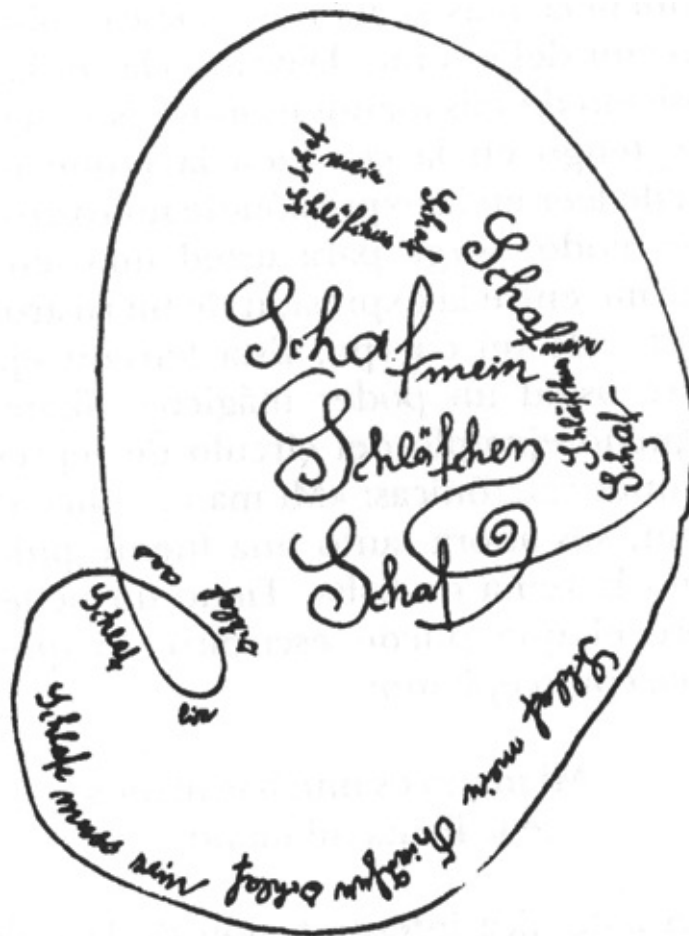 Schaf
mein
Schläfchen
Schaf
Schaf
mein
Schläfchen
Schaf
Schaf
mein
Schläfchen
Schaf
Schlafe
ein
Schlafe muss sein
Schlaf
mein
Schlaf